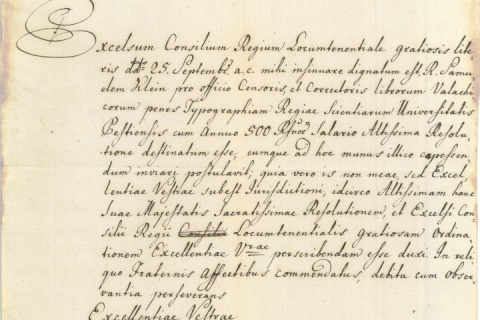 Excelsum Consilium Regium Locumtenentiale gratiosis lite-
ris ddt. 25. Septembr. a.c. mihi insinuare dignatum est, R. Samu-
elem Klein pro officio Censoris, et Correctoris librorum Valachi-
corum penes Typographiam Regiae Scientiarum Universitatis
Pestiensis cum Annuo 500 Rfnor. Salario Altissima Resolu-
tione destinatum esse, eumque ad hoc munus illico capessen-
dum invitari postulavit; quia vero is non meae, sed Excel-
lentiae Vestrae subest Jurisdictioni, idcirco Altissimam hanc
Suae Majestatis Sacratissimae Resolutionem, et Excelsi Con-
silii Regii Consilii Locumtenentialis gratiosam Ordina-
tionem Excellentiae Vrae perscribendam esse duxi. In reli-
quo Fraternis Affectibus commendatus, debita cum obser-
vantia perseverans
Excellentiae Vestrae